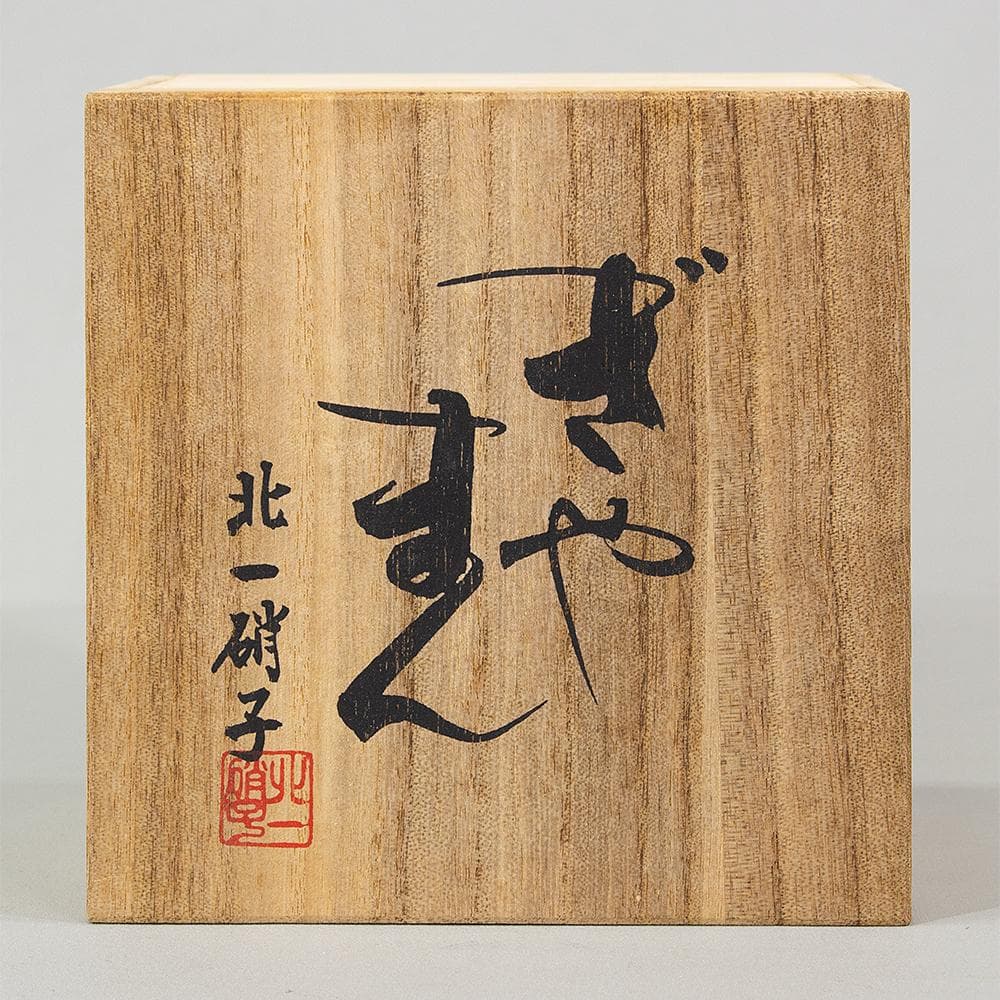 ぎや
まん
北一硝子
北一
硝子